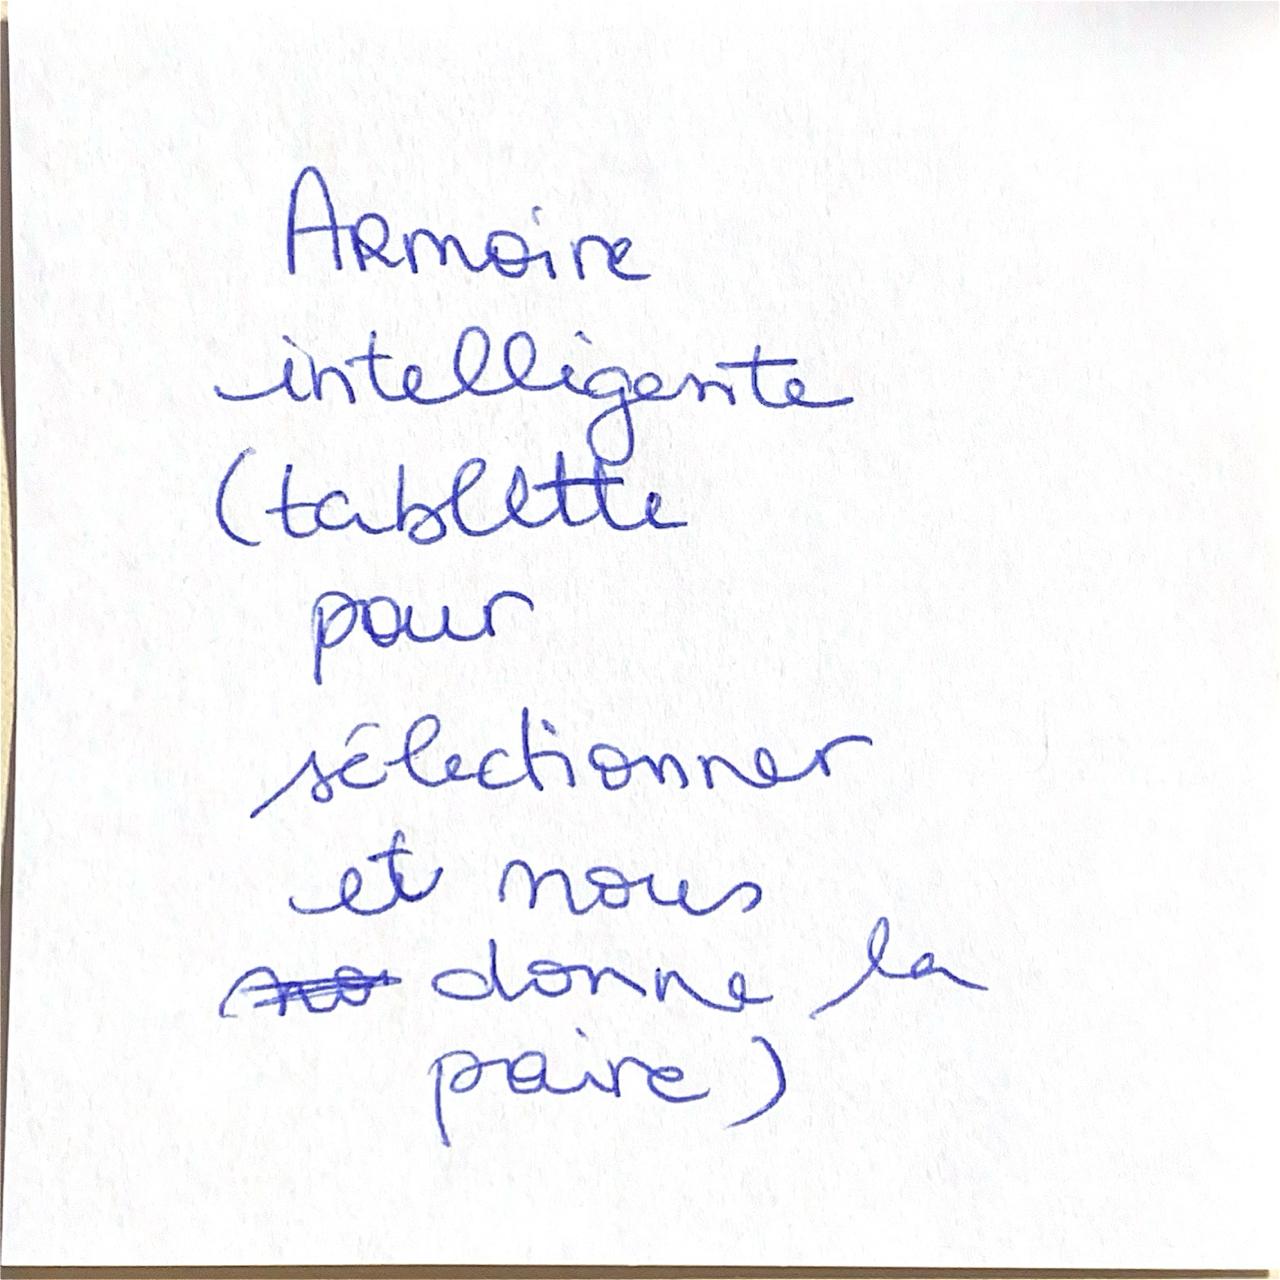 Armoire
intelligente
(tablette
pour
sélectionner
et nous
donne la
paire)